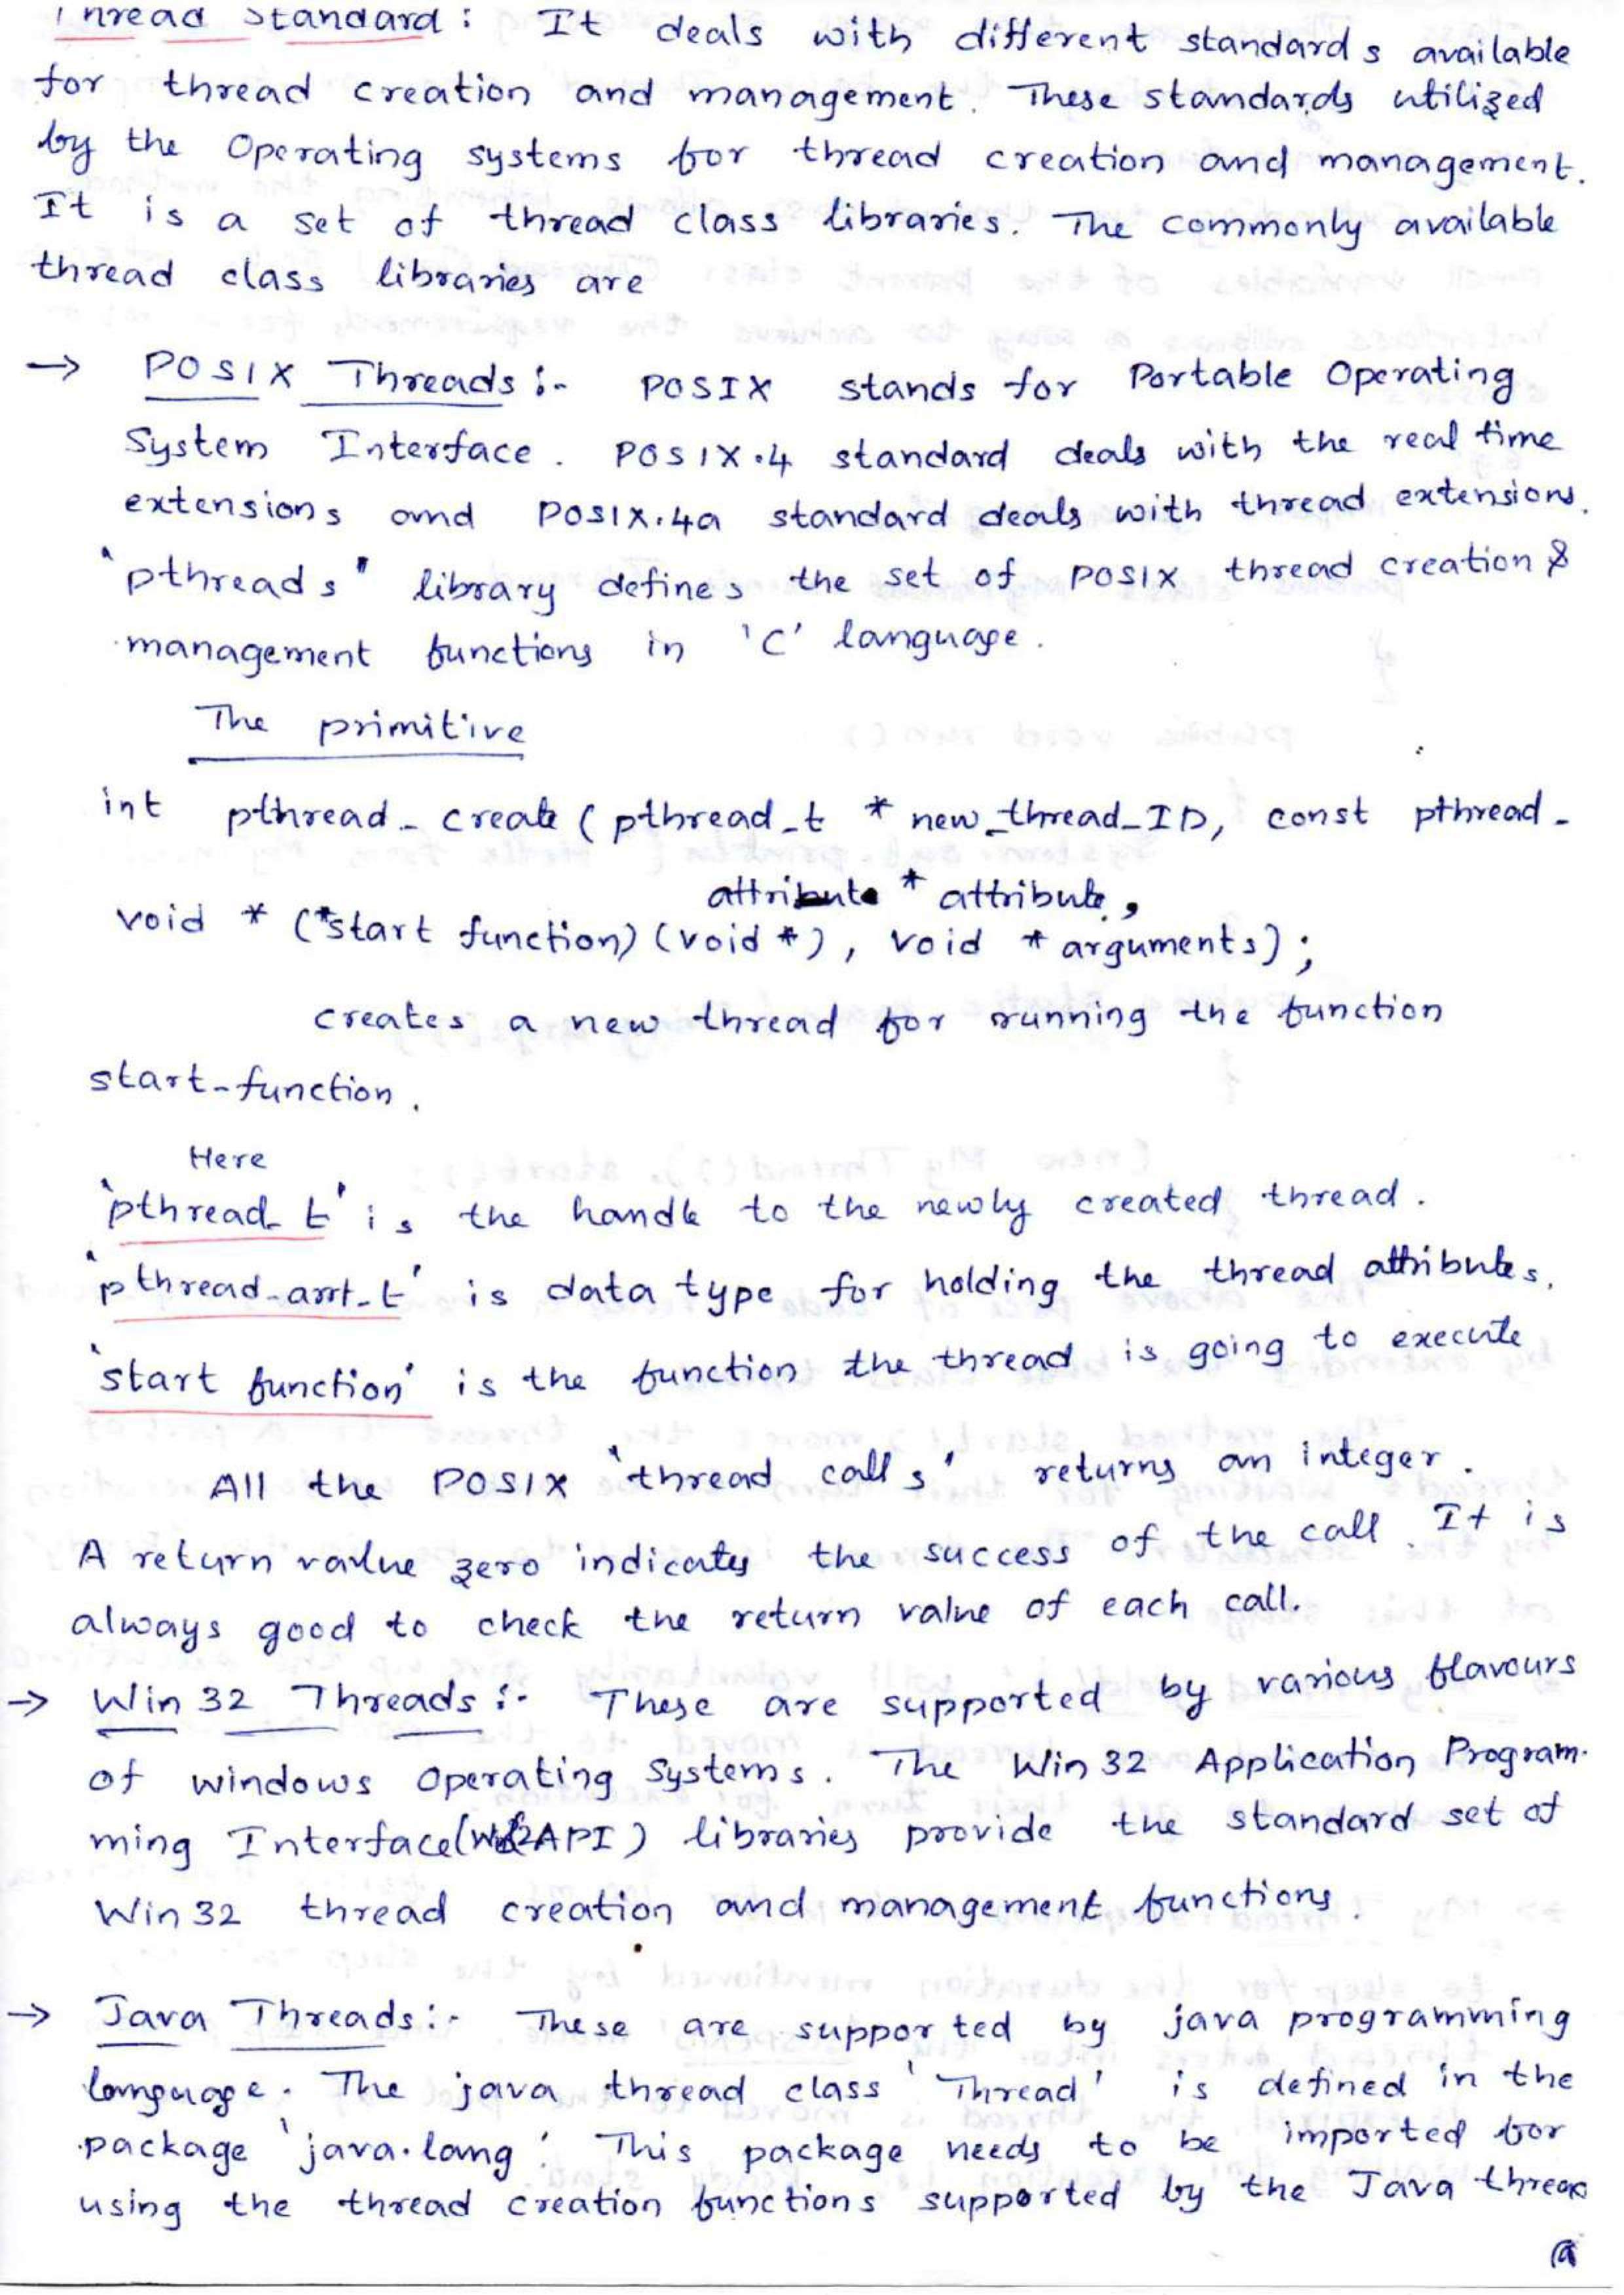 Thread Standard : It deals with different standards available
for thread creation and management. These standards utilized
by the Operating systems for thread creation and management.
It is a set of thread class libraries. The commonly available
thread class libraries are
→ POSIX Threads :- POSIX stands for Portable Operating
System Interface. POSIX.4 standard deals with the real time
extensions and POSIX.4a standard deals with thread extensions.
'pthreads" library defines the set of POSIX thread creation &
management functions in 'C' language.
The primitive
int pthread_create ( pthread_t * new_thread_ID, const pthread_
attribute * attribute,
void * (*start function) (void *), void * arguments) ;
creates a new thread for running the function
start-function.
Here
'pthread_t' is the handle to the newly created thread.
'pthread_arrt_t' is data type for holding the thread attributes.
'start function' is the function the thread is going to execute
All the POSIX 'thread calls' returns an integer.
A return value zero indicates the success of the call. It is
always good to check the return value of each call.
→ Win 32 Threads :- These are supported by various flavours
of windows Operating Systems. The Win 32 Application Program-
ming Interface ( API ) libraries provide the standard set of
Win 32 thread creation and management functions.
→ Java Threads :- These are supported by java programming
language. The java thread class 'Thread' is defined in the
package 'java.lang'. This package needs to be imported for
using the thread creation functions supported by the Java thread